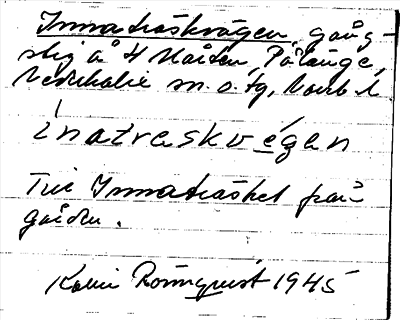 Innaträskvägen, gång-
stig å H Norden, Pålänge,
Nederkalix sn. o. tg, Norrb. l.
inatrɛskvɛgan
Till Innaträsket från
gården.
Karin Rönnquist 1945